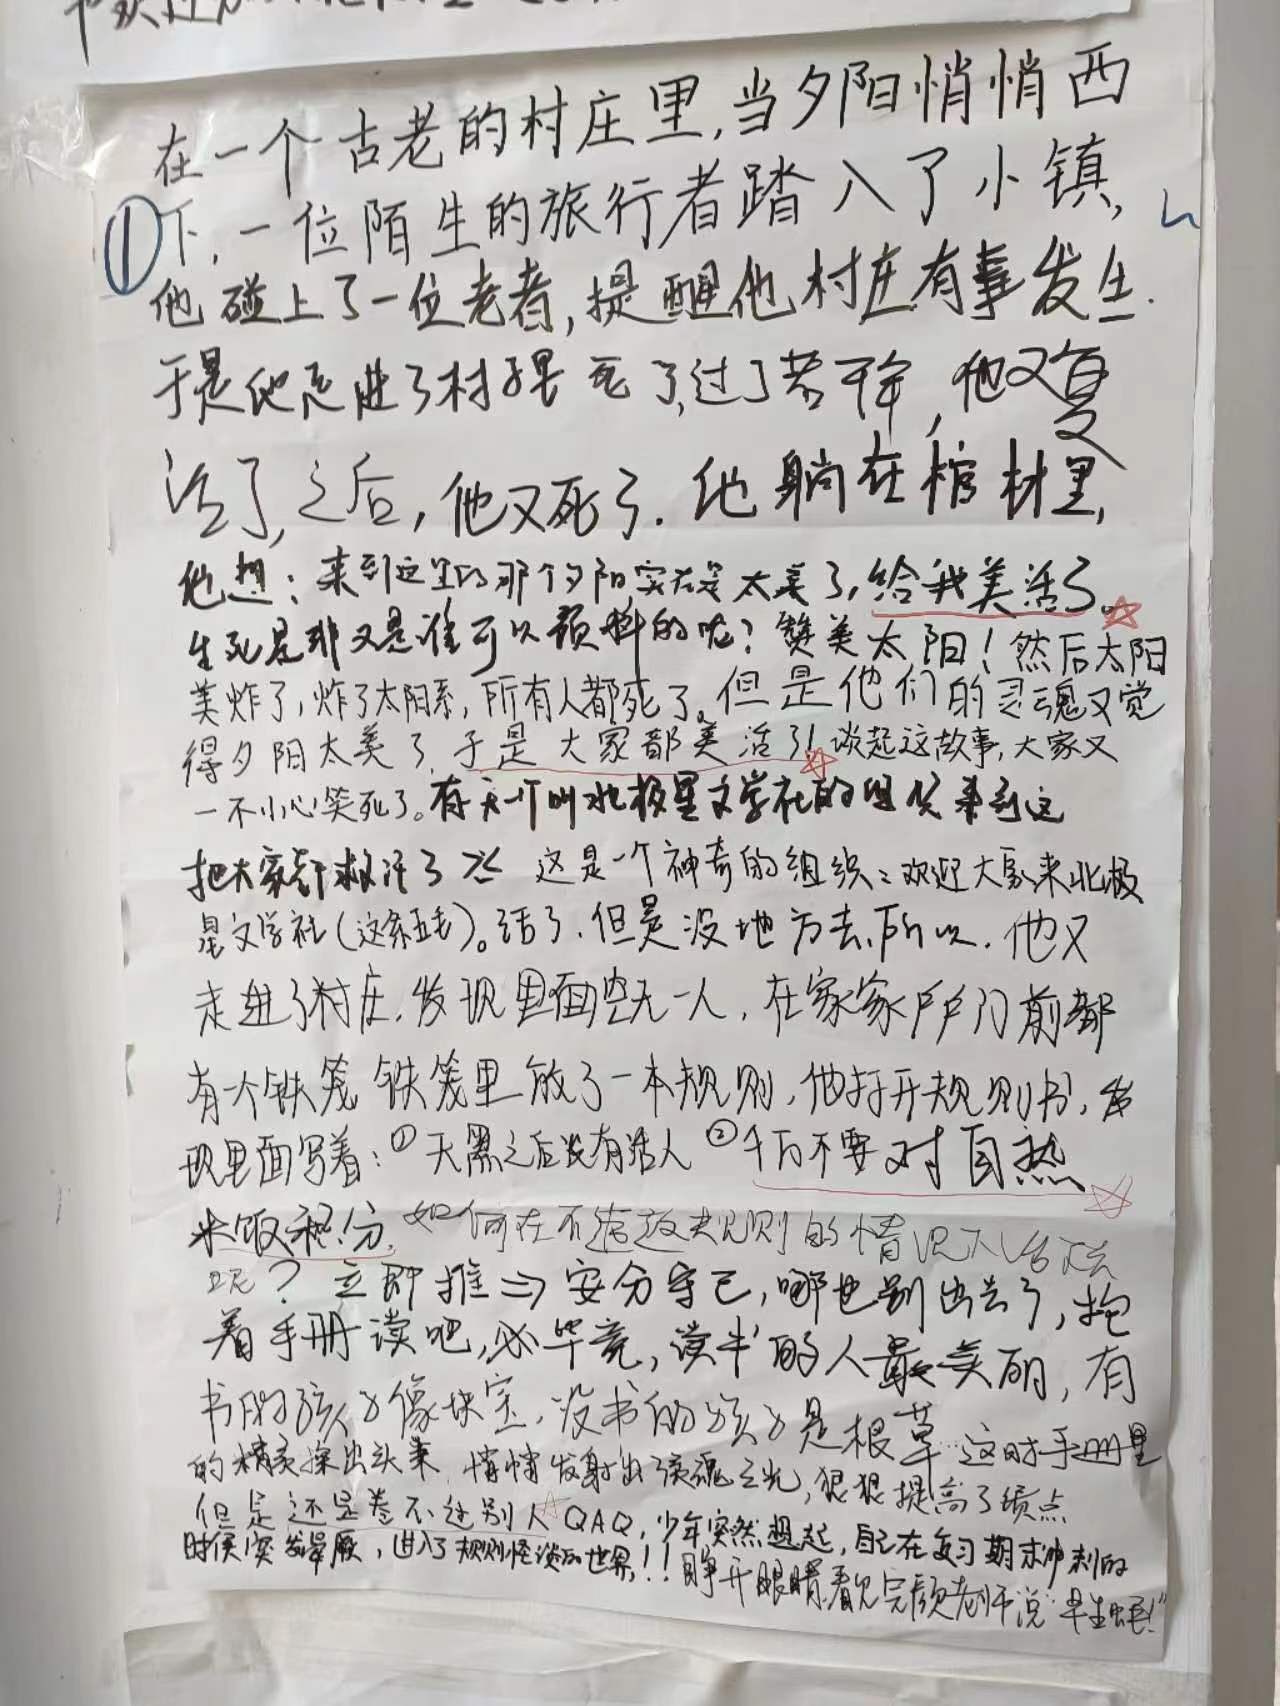 在一个古老的村庄里,当夕阳悄悄西
①下,一位陌生的旅行者踏入了小镇,
他碰上了一位老者,提醒他村庄有事发生.
于是他走进了村子里死了,过了若干年,他又复
活了,之后,他又死了.他躺在棺材里,
他想:来到这里的那个夕阳实在是太美了,给我美活了。
生死是非又是谁可以预料的呢?赞美太阳!然后太阳
美炸了,炸了太阳系,所有人都死了。但是他们的灵魂又觉
得夕阳太美了,于是大家都美活了!谈起这故事,大家又
一不小心笑死了。有天一个叫北极星文学社的组织来到这
把大家都救活了 这是一个神奇的组织:欢迎大家来北极
星文学社()。活了.但是没地方去,所以.他又
走进了村庄.发现里面空无一人,在家家户户门前都
有个铁笼 铁笼里放了一本规则,他打开规则书,发
现里面写着:①天黑之后没有活人 ②千万不要对自热
米饭积分.如何在不违反规则的情况下
?立即推⇒安分守己,哪也别出去了,抱
着手册读吧,毕竟,读书的人最美丽,有
书的孩子像块宝,没书的孩子是根草…这时手册里
的精灵探出头来 悄悄发射出灵魂之光,狠狠提高了绩点
但是还是卷不过别人QAQ,少年突然想起,自己在复习期末冲刺的
时候突发晕厥,进入了规则怪谈的世界,!!睁开眼睛看见完颜老师说"早生蚝!"